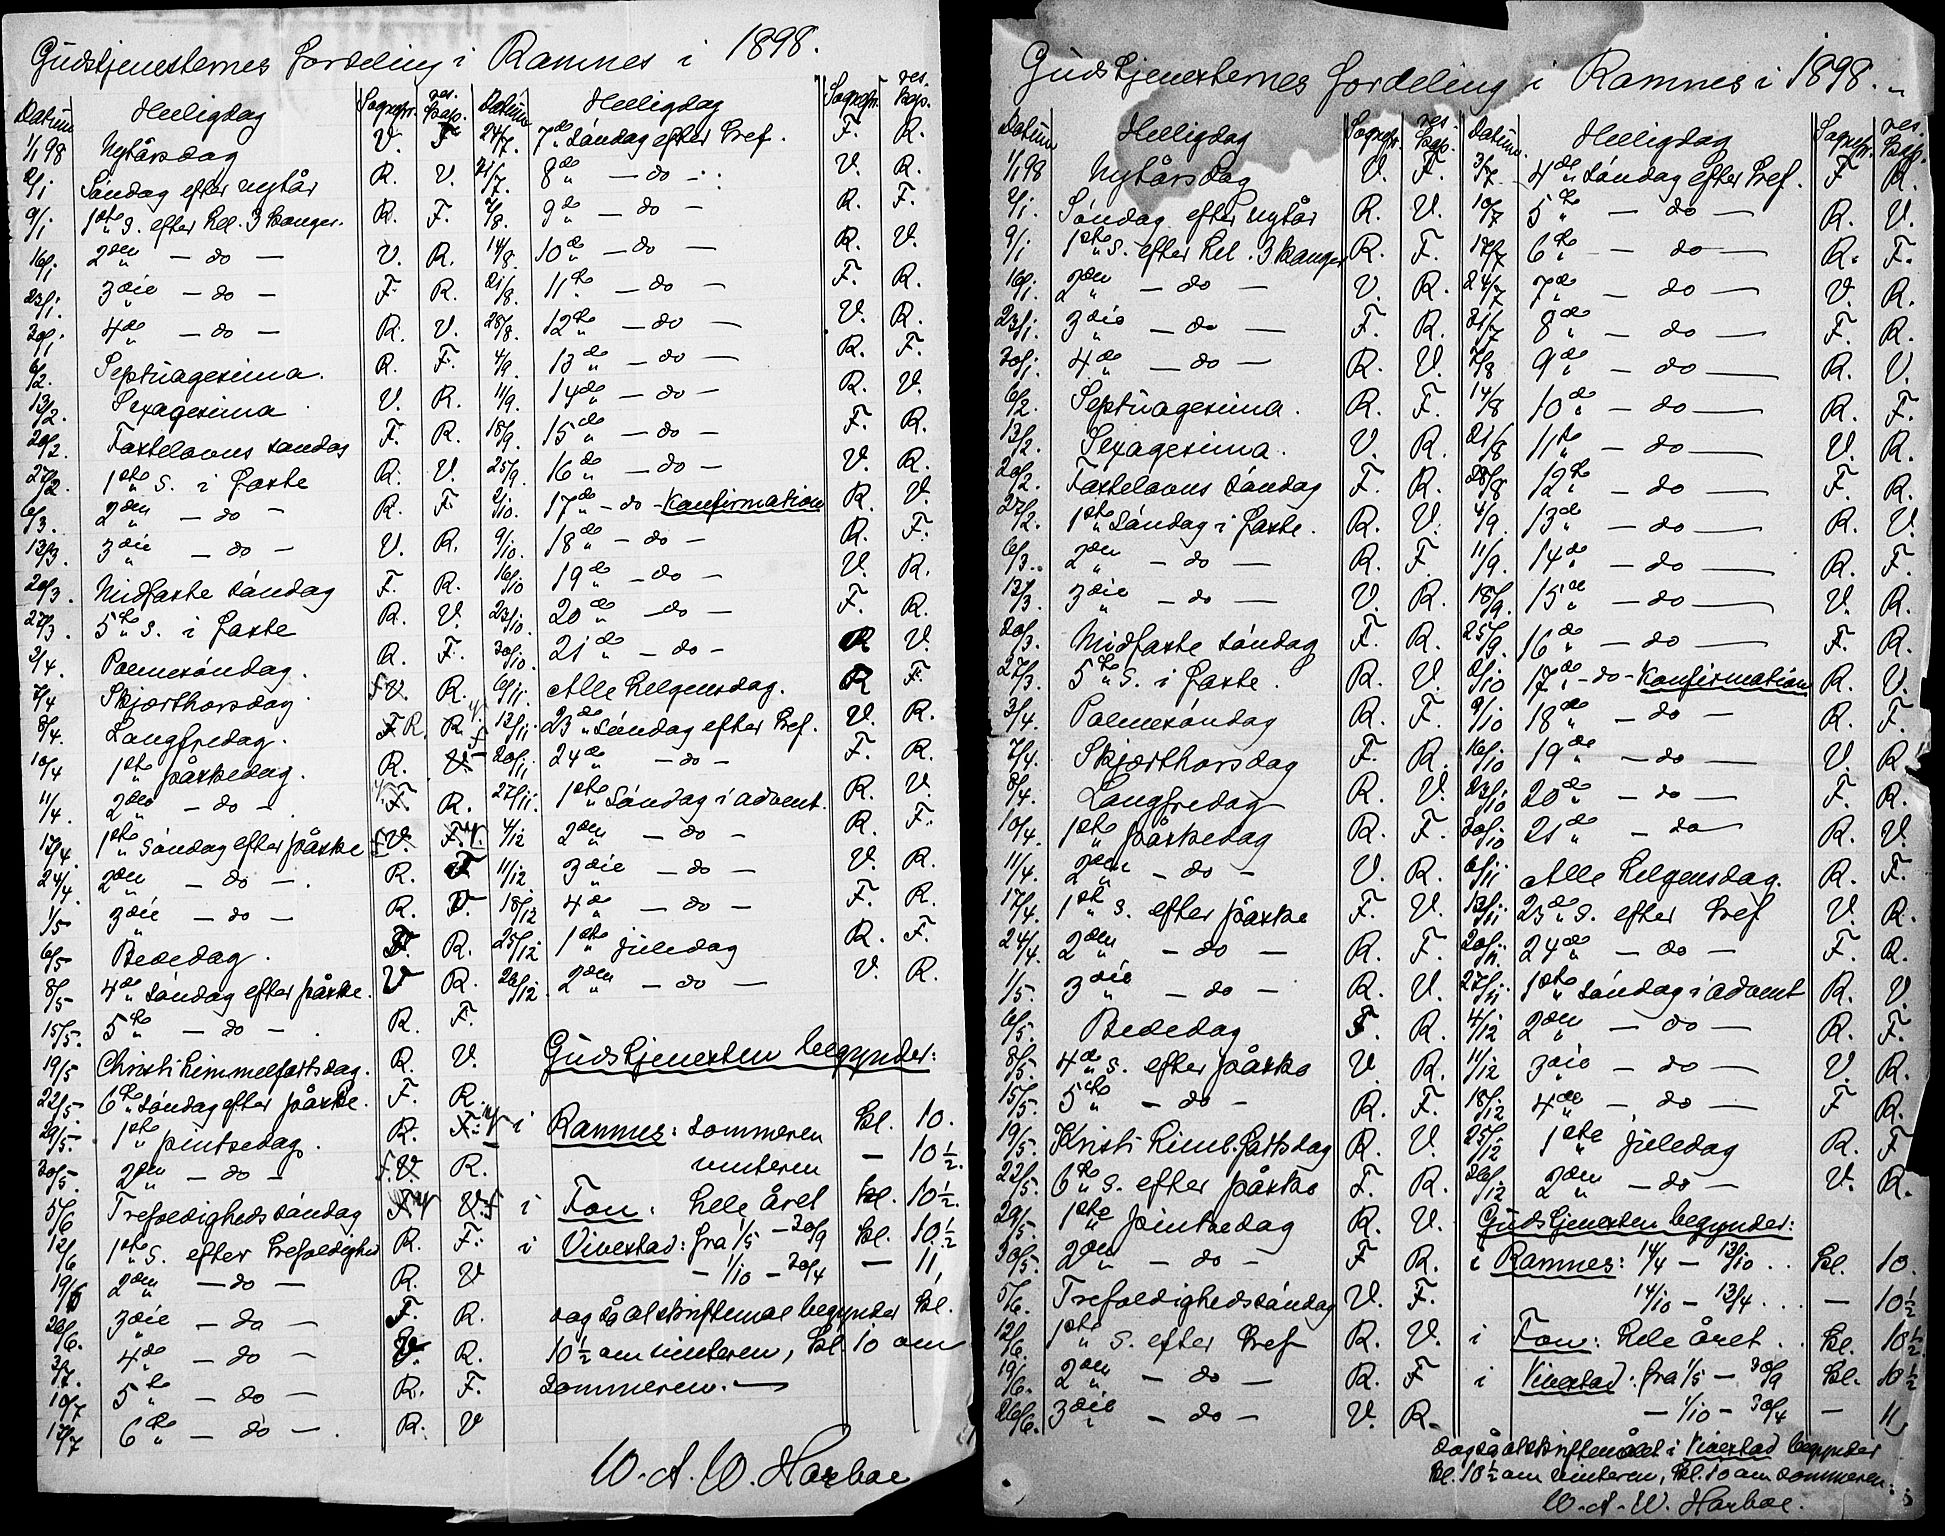 Gudstjenesternes fordeling i Ramnes i 1898.
Datum Helligdag Sognepr. res. Kap.
1/1 98 Nytårsdag V. F.
2/1 Søndag efter nytår R. V.
9/1 1ste S. efter hel. 3 konger. R. F.
16/1 2den — do — V. R.
23/1 3die — do — F. R.
30/1 4de — do — R. V.
6/2. Septuagesima. R. F.
13/2. Sexagesima V. R.
20/2. Fastelavns søndag F. R.
27/2. 1ste S. i faste R. V.
6/3. 2den — do — R. F.
13/3. 3die — do — V. R.
20/3. Midfaste søndag F. R.
27/3. 5te S. i faste R. V.
3/4. Palmesøndag. R. F.
7/4 Skjærthorsdag F V. R.
8/4. Langfredag. F R. R. V.
10/4 1ste påskedag. R. V. F
11/4. 2den — do — V. F. R.
17/4. 1ste Søndag efter påske F V. F. V.
24/4. 2den — do — . R. F
1/5 3die — do — R. V.
6/5 Bededag. F. R.
8/5 4de Søndag efter påske. V R.
15/5. 5te — do — . R. F.
19/5 Christi himmelfartsdag. R. V.
22/5. 6te Søndag efter påske. F. R.
29/5. 1ste pintsedag. R. F. V
30/5. 2den — do — F. V. R.
5/6 Trefoldigheds søndag F V V. F
12/6 1ste S. efter trefoldighed R. F.
19/6 2den — do — R. V
26/6. 3die — do — F. R.
3/7. 4de — do — V. R.
10/7 5te — do — R. F.
17/7 6te — do — . R. V
Datum Helligdag Sognepr. res. Kap.
24/7. 7de Søndag efter Tref. F. R.
31/7. 8de — do — V. R.
7/8. 9de — do — R. F.
14/8. 10de — do — R. V.
21/8. 11te — do — F. R.
28/8. 12te — do — V. R.
4/9. 13de — do — R. F.
11/9. 14de — do — R. V.
18/9. 15de — do — F. R.
25/9. 16de — do — V. R.
2/10. 17de — do — Konfirmation R. V.
9/10. 18de — do — R. F.
16/10 19de — do — V. R.
23/10. 20de — do — F. R.
30/10. 21de — do — R V.
6/11. Alle helgensdag. R F.
13/11 23de Søndag efter Tref. V. R.
20/11 24de — do — F. R.
27/11. 1ste Søndag i advent. R V.
4/12 2den — do — R. F.
11/12 3die — do — V. R.
18/12 4de — do — F. R.
25/12 1ste juledag R. F.
26/12. 2den — do — V. R.
Gudstjenesten begynder:
i Ramnes: sommeren Kl. 10.
vinteren — 10½.
i Fon: hele året Kl. 10½.
i Vivestad: fra 1/5 — 30/9 Kl. 10½
— 1/10 — 30/4 — 11,
dog så at skriftemål begynder Kl.
10½ om vinteren, Kl. 10 om
sommeren. —
W. A. W. Harboe
Gudstjenesternes fordeling i Ramnes i 1898.
Datum Helligdag Sognepr. res. Kap.
1/1 98 Nytårsdag V. F.
2/1. Søndag efter nytår R. V.
9/1 1ste S. efter hel. 3 konger R. F.
16/1. 2den — do — V. R.
23/1. 3die — do — F. R.
30/1. 4de — do — R. V.
6/2. Septuagesima. R. F.
13/2. Sexagesima. V. R.
20/2. Fastelavns søndag F. R.
27/2. 1ste Søndag i faste. R. V.
6/3. 2den — do — R. F.
13/3. 3die — do — V. R.
20/3. Midfaste søndag F. R.
27/3. 5te S. i faste. R. V.
3/4. Palmesøndag R. F.
7/4. Skjærthorsdag F. R.
8/4. Langfredag R. V.
10/4. 1ste påskedag R. F.
11/4. 2den — do — V. R.
17/4. 1ste S. efter påske F. V.
24/4. 2den — do — R. F.
1/5. 3die — do — R. V.
6/5. Bededag F. R.
8/5. 4de S. efter påske V. R.
15/5. 5te — do — R. F.
19/5. Kristi himl.fartsdag R. V.
22/5. 6te S. efter påske F. R.
29/5. 1ste pintsedag R. V.
30/5. 2den — do — F R.
5/6. Trefoldighedssøndag V. F.
12/6. 1ste S. efter Tref R. V.
19/6. 2den — do — R. F
26/6. 3die — do — V. R.
Datum. Helligdag Sognepr. res. Kap.
3/7 4de Søndag efter Tref. F R.
10/7 5te — do — R. V.
17/7 6te — do — R. F.
24/7 7de — do — V. R.
31/7 8de — do — F. R.
7/8 9de — do — R. V.
14/8 10de — do — R. F.
21/8 11te — do — V. R.
28/8 12te — do — F. R.
4/9. 13de — do — R. V.
11/9. 14de — do — R. F.
18/9. 15de — do — V. R.
25/9. 16de — do — F. R.
2/10 17de — do — Konfirmation R. V.
9/10 18de — do — R. F.
16/10 19de — do — V. R
23/10 20de — do — F. R.
30/10 21de — do R. V.
6/11 Alle helgensdag. R. F.
13/11 23de S. efter Tref V. R.
20/11. 24de — do — F. R.
27/11. 1ste Søndag i advent R. V.
4/12 2den — do — R. F.
11/12 3die — do — V. R.
18/12 4de — do — F R.
25/12 1ste juledag R. F
26/12 2den — do — V. R.
Gudstjenesten begynder:
i Ramnes: 14/4 — 13/10 . . Kl. 10.
14/10 — 13/4 . . . — 10½
i Fon: hele året . . Kl. 10½
i Vivestad: fra 1/5 — 30/9 Kl. 10½
— 1/10 — 30/4 — 11,
dog så at skriftemålet i Vivestad begynder
Kl. 10½ om vinteren, Kl. 10 om sommeren.
W. A. W. Harboe.